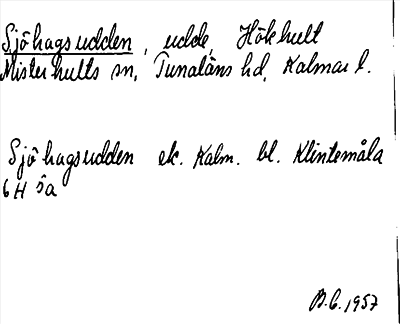 Sjöhagsudden, udde, Hökhult
Misterhults sn, Tunaläns hd, Kalmar l.
Sjöhagsudden ek. Kalm. bl. Klintemåla
6 H 5a
B.C. 1957